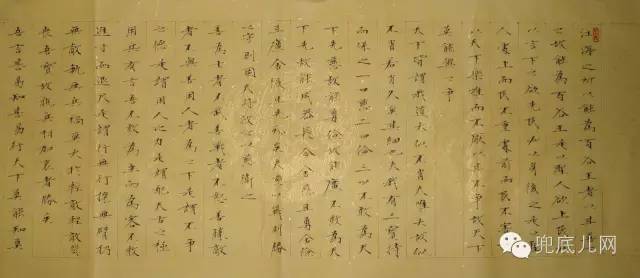 江海之所以能為百谷王者以其善下
之故能為百谷王是以聖人欲上民必
以言下之欲先民必以身後之是以聖
人處上而民不重處前而民不害是
以天下樂推而不厭以其不爭故天下
莫能與之爭
天下皆謂我道大似不肖夫唯大故似
不肖若肖久矣其細也夫我有三寶持
而保之一曰慈二曰儉三曰不敢為天
下先慈故能勇儉故能廣不敢為天
下先故能成器長今舍慈且勇舍儉
且廣舍後且先死矣夫慈以戰則勝
以守則固天將救之以慈衛之
善為士者不武善戰者不怒善勝敵
者不與善用人者為之下是謂不爭
之德是謂用人之力是謂配天古之極
用兵有言吾不敢為主而為客不敢
進寸而退尺是謂行無行攘無臂扔
無敵執無兵禍莫大於輕敵輕敵幾
喪吾寶故抗兵相加哀者勝矣
吾言甚易知甚易行天下莫能知莫
兜底儿网